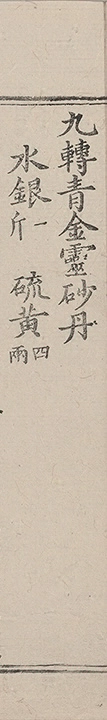 九轉青金靈砂丹
水銀一斤 硫黃四兩